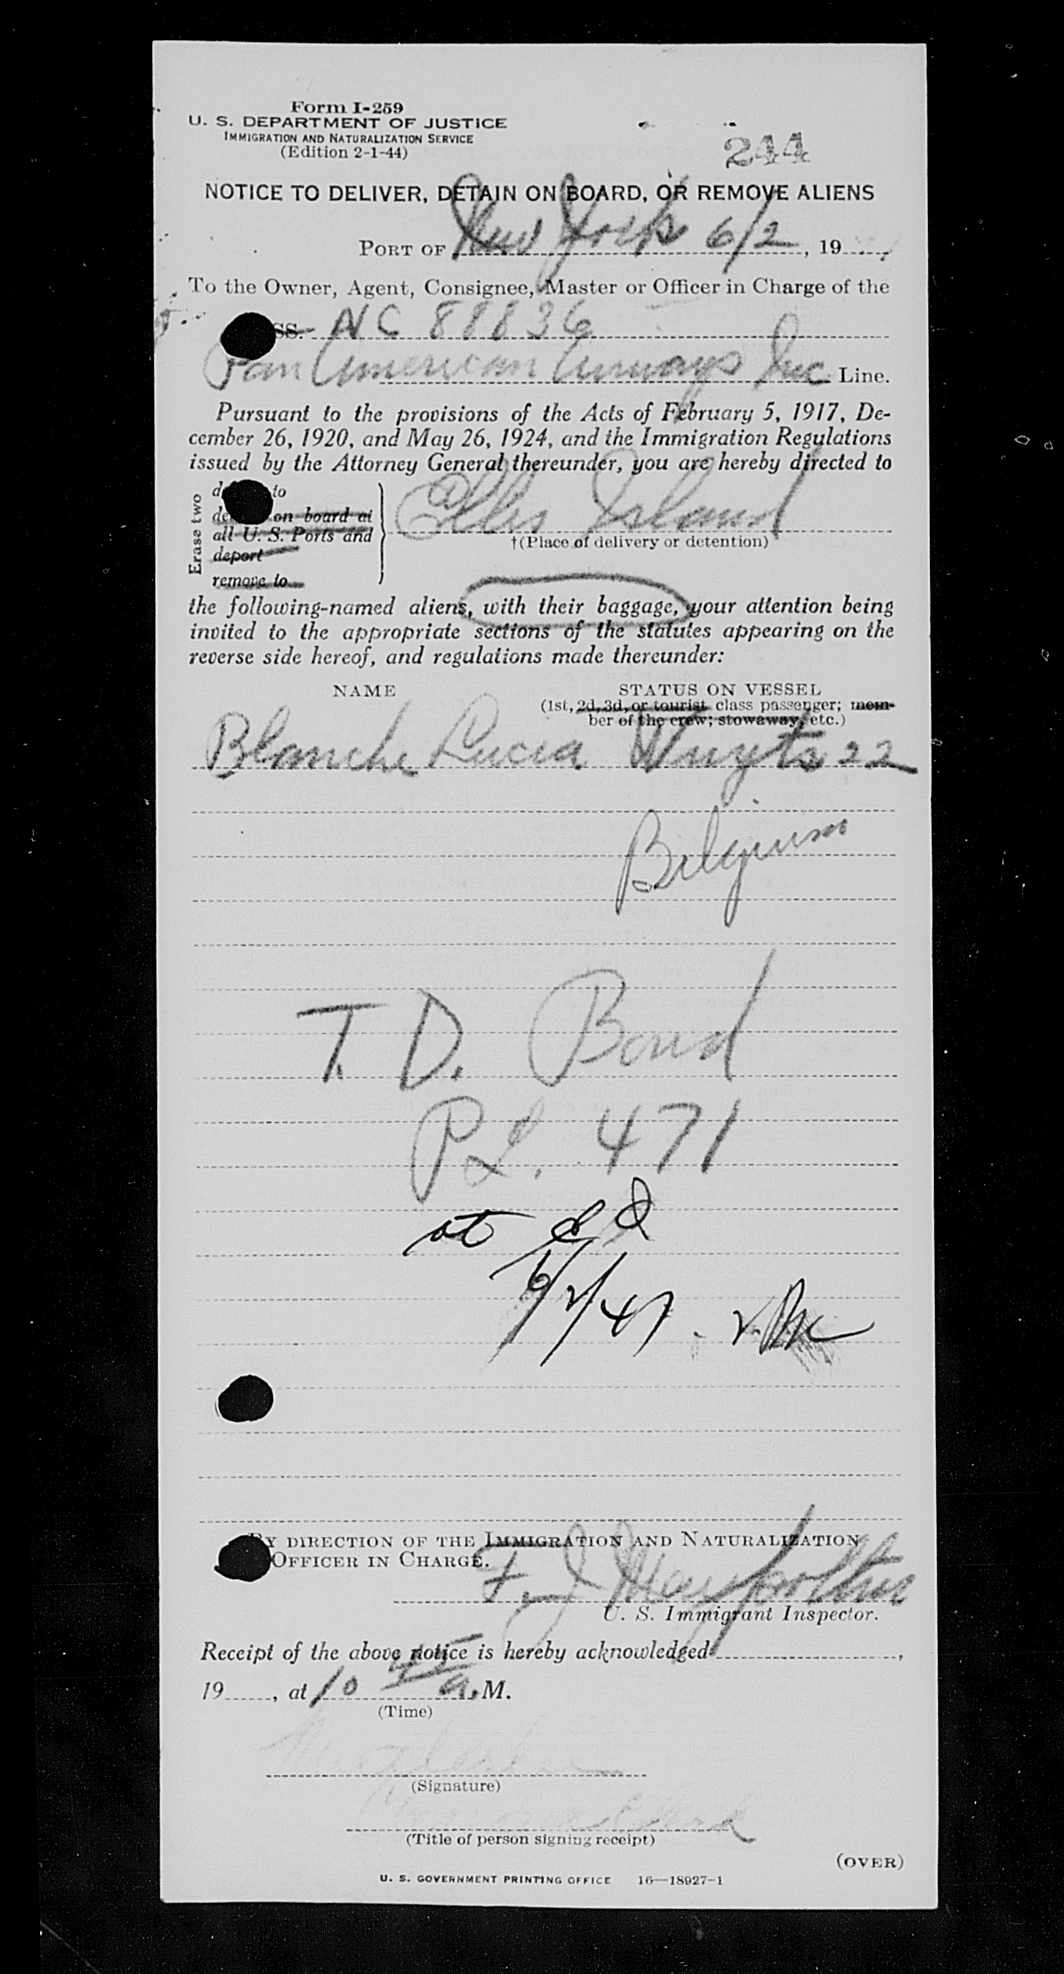 Form I-259
U. S. DEPARTMENT OF JUSTICE
IMMIGRATION AND NATURALIZATION SERVICE
(Edition 2-1-44)
244
NOTICE TO DELIVER, DETAIN ON BOARD, OR REMOVE ALIENS
PORT OF New York 6/2, 19
To the Owner, Agent, Consignee, Master or Officer in Charge of the
SS. NC 88836
Pan American Airways Inc Line.
Pursuant to the provisions of the Acts of February 5, 1917, De-
cember 26, 1920, and May 26, 1924, and the Immigration Regulations
issued by the Attorney General thereunder, you are hereby directed to
Erase two
to
on board at
all U. S. Ports and
deport
remove to
Ellis Island
†(Place of delivery or detention)
the following-named aliens, with their baggage, your attention being
invited to the appropriate sections of the statutes appearing on the
reverse side hereof, and regulations made thereunder:
NAME
STATUS ON VESSEL
(1st, 2d, 3d, or tourist class passenger; mem-
ber of the crew; stowaway, etc.)
Blanche Lucia 22
Belgium
T. D. Bond
P.L. 471
at
6/2/47
BY DIRECTION OF THE IMMIGRATION AND NATURALIZATION
OFFICER IN CHARGE.
F. J.
U. S. Immigrant Inspector.
Receipt of the above notice is hereby acknowledged
19, at 10 45 a. M.
(Time)
(Signature)
(Title of person signing receipt)
(OVER)
U. S. GOVERNMENT PRINTING OFFICE 16—18927-1